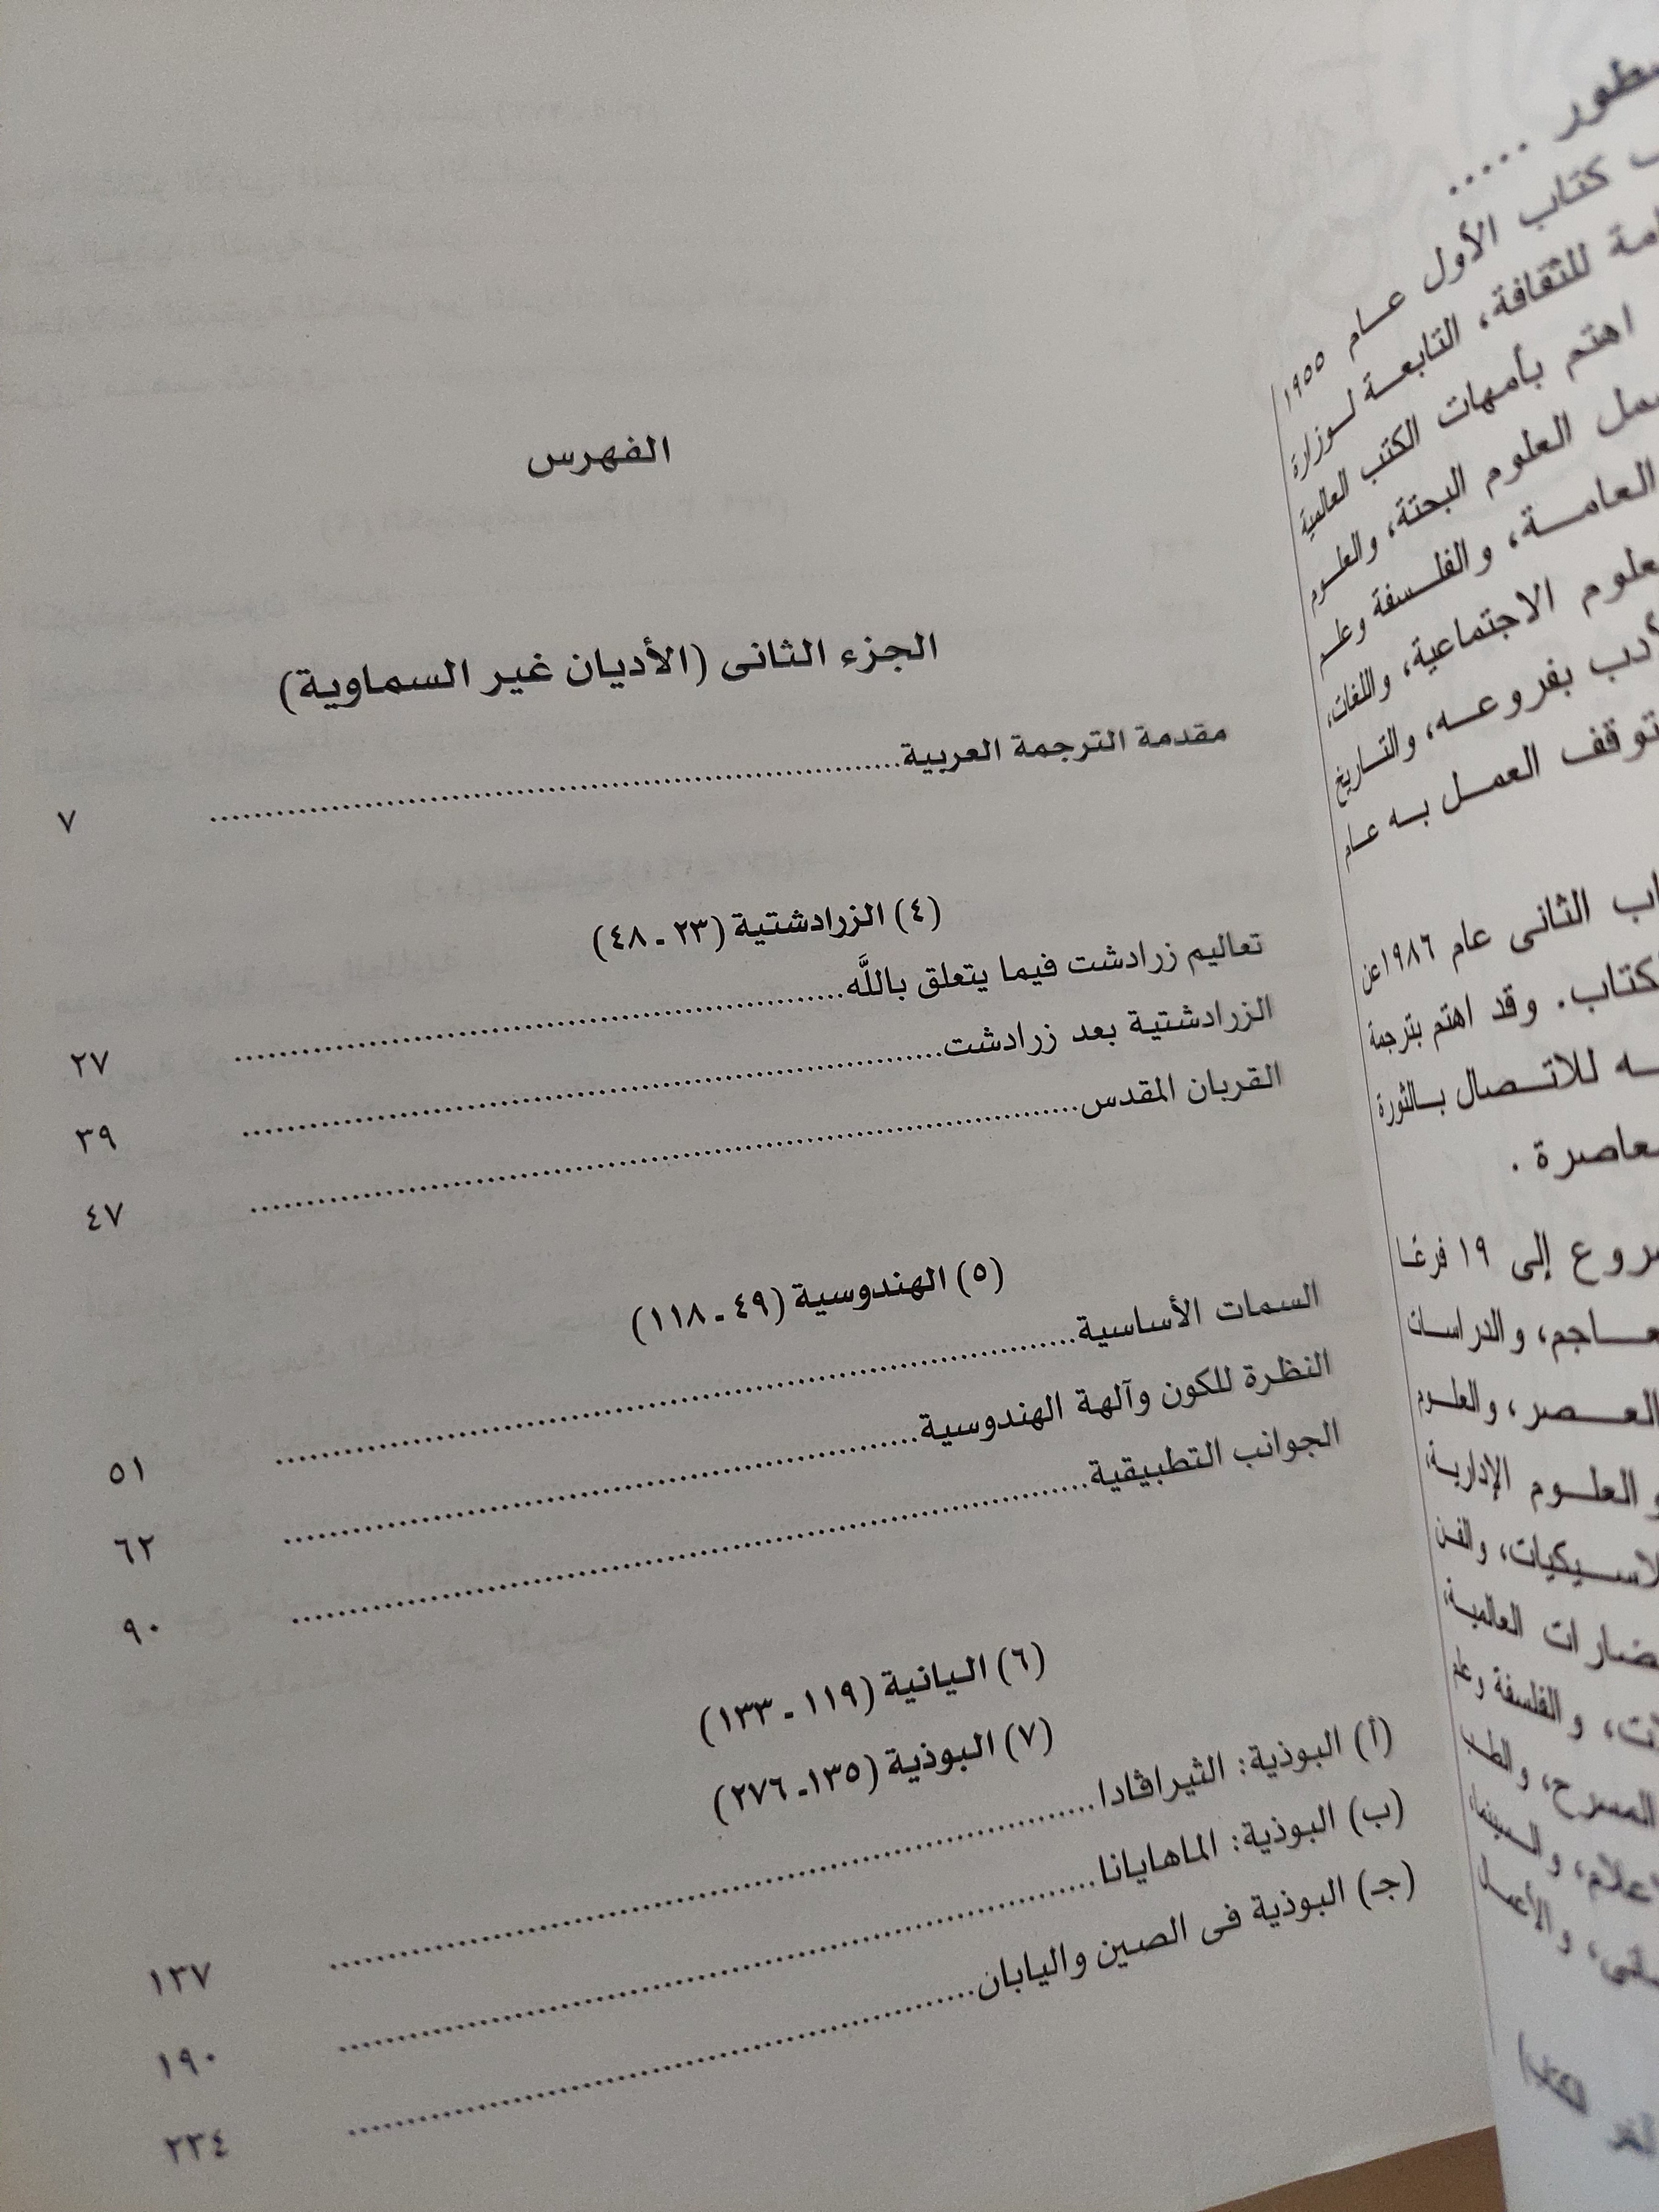 الفهرس
الجزء الثانى (الأديان غير السماوية)
مقدمة الترجمة العربية ........ ٧
(٤) الزرادشتية (٢٣ ـ ٤٨)
تعاليم زرادشت فيما يتعلق باللَّه ........ ٢٧
الزرادشتية بعد زرادشت ........ ٣٩
القربان المقدس ........ ٤٧
(٥) الهندوسية (٤٩ ـ ١١٨)
السمات الأساسية ........ ٥١
النظرة للكون وآلهة الهندوسية ........ ٦٢
الجوانب التطبيقية ........ ٩٠
(٦) اليانية (١١٩ ـ ١٣٣)
(٧) البوذية (١٣٥ـ ٢٧٦)
(أ) البوذية: الثيراڤادا ........ ١٣٧
(ب) البوذية: الماهايانا ........ ١٩٠
(جـ) البوذية فى الصين واليابان ........ ٢٣٤
كتاب الأول عـام ١٩٥٥
للثقافة، التابعـة لـوزارة
اهتم بأمهات الكتب العالمية
العلوم البحتة، والعلـوم
العامـة، والفلـسفة وعلـم
الاجتماعية، واللغات،
بفروعـه، والتـاريخ
توقف العمـل بـه عـام
الثانى عام ١٩٨٦عن
وقد اهتم بترجمة
للاتـصال بـالثورة
إلى ١٩ فرعًـا
والدراسـات
العـصر، والعلـوم
العلـوم الإداريـة،
والفـن
العالميـة،
والفلسفة وعلم
المسرح، والطـب